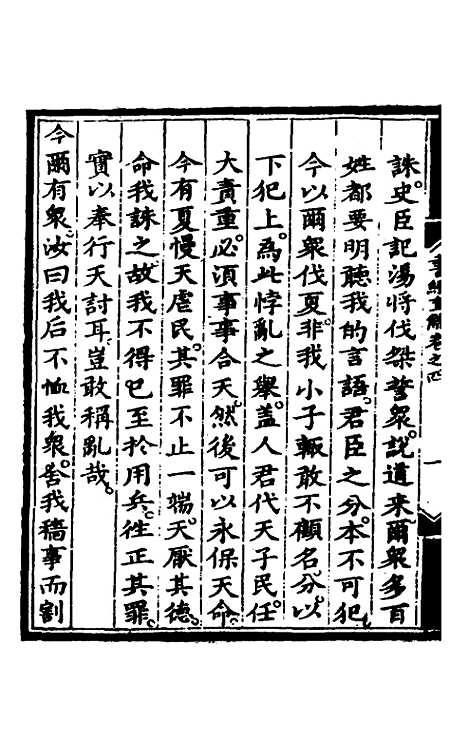 書經直解卷之四
一
誅史臣記湯將伐桀誓衆說道来爾衆多百
姓都要明聽我的言語君臣之分本不可犯
今以爾衆伐夏非我小子輙敢不顧名分以
下犯上為此悖亂之舉蓋人君代天子民任
大責重必湏事事合天然後可以永保天命
今有夏慢天虐民其罪不止一端天厭其德
命我誅之故我不得已至於用兵徃正其罪
實以奉行天討耳豈敢稱亂哉
今爾有衆汝曰我后不恤我衆舎我穡事而割